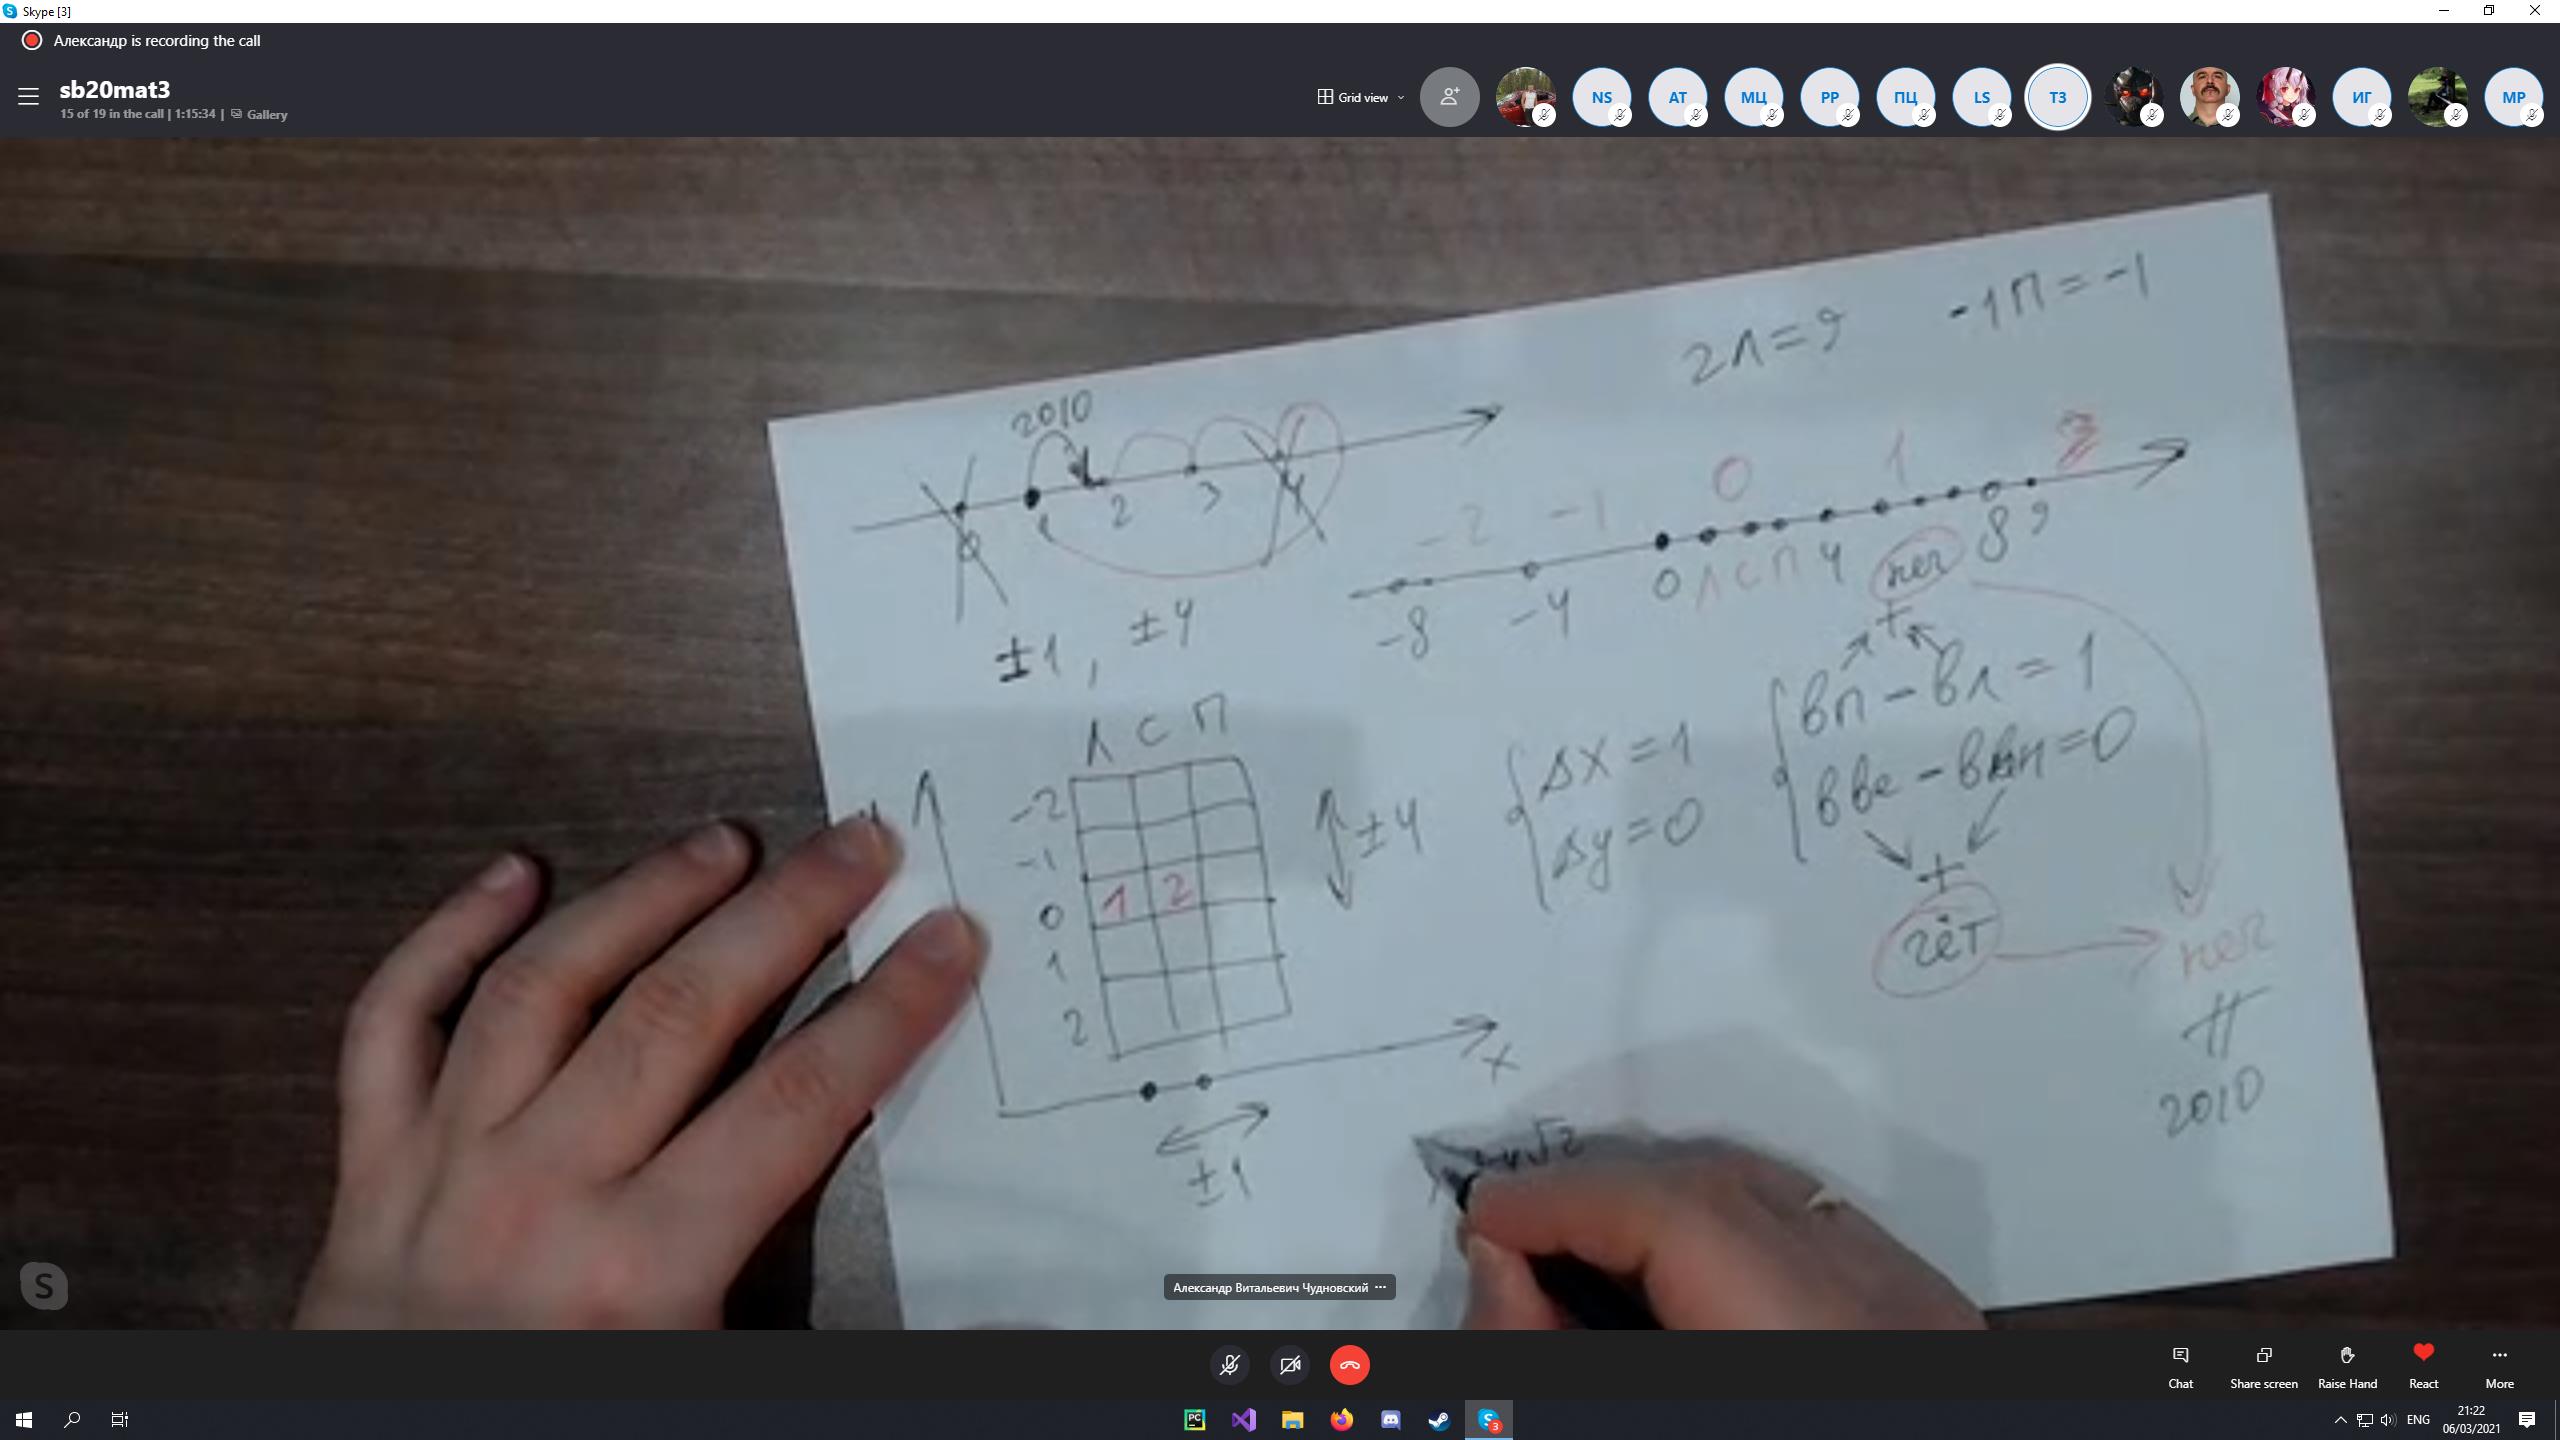 Skype [3]
Александр is recording the call
sb20mat3
15 of 19 in the call | 1:15:34 | Gallery
Grid view
NS
AT
МЦ
PP
ПЦ
LS
ТЗ
ИГ
MP
2Л=9
-1П=-1
2010
0
1
2
3
4
±1, ±4
-2
-1
0
1
2
-8
-4
0
Л
С
П
4
неч
8
9
+
вп - вл = 1
вве - ввн = 0
+
чёт
неч
2010
Δx = 1
Δy = 0
Л С П
-2
-1
0
1
2
1
2
±4
y
x
±1
√2
Александр Витальевич Чудновский
Chat
Share screen
Raise Hand
React
More
S
PC
3
ENG
21:22
06/03/2021